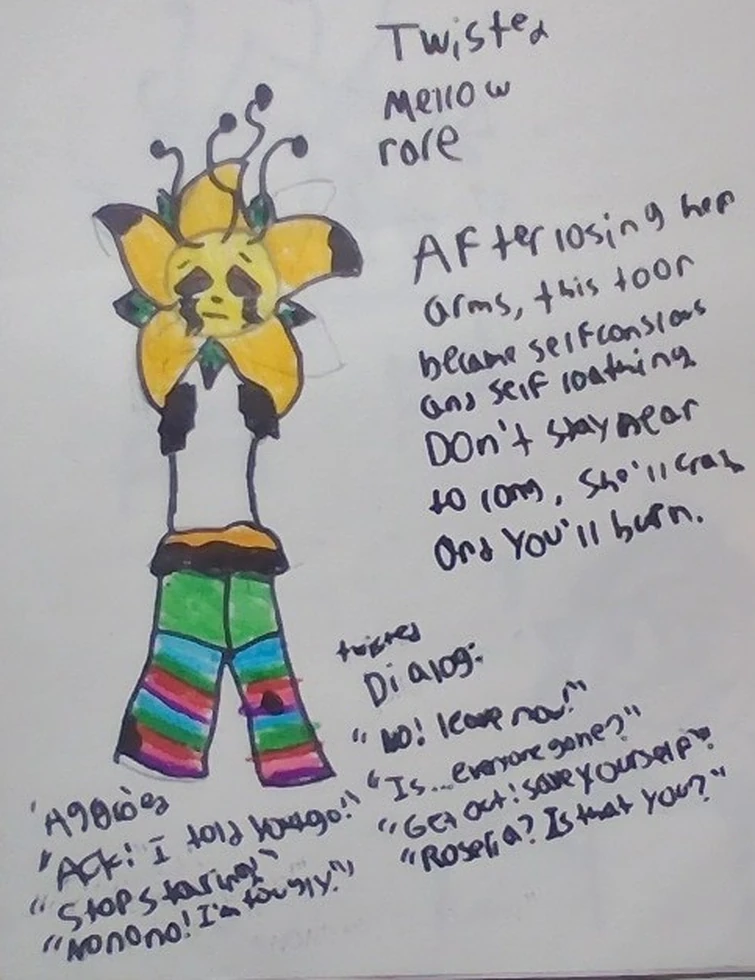 Twisted
Mellow
rare
After losing her
arms, this toon
became selfconsious
and self loathing
Don't stay near
to long, she'll
and You'll burn.
twisted
Dialog:
"No! leave now!"
"Is... everyone gone?"
"Get out! save yourself"!
"Roselia? Is that you?"
"Ack! I told you go!"
"Stop staring"
"Nonono! I'm to ugly!"